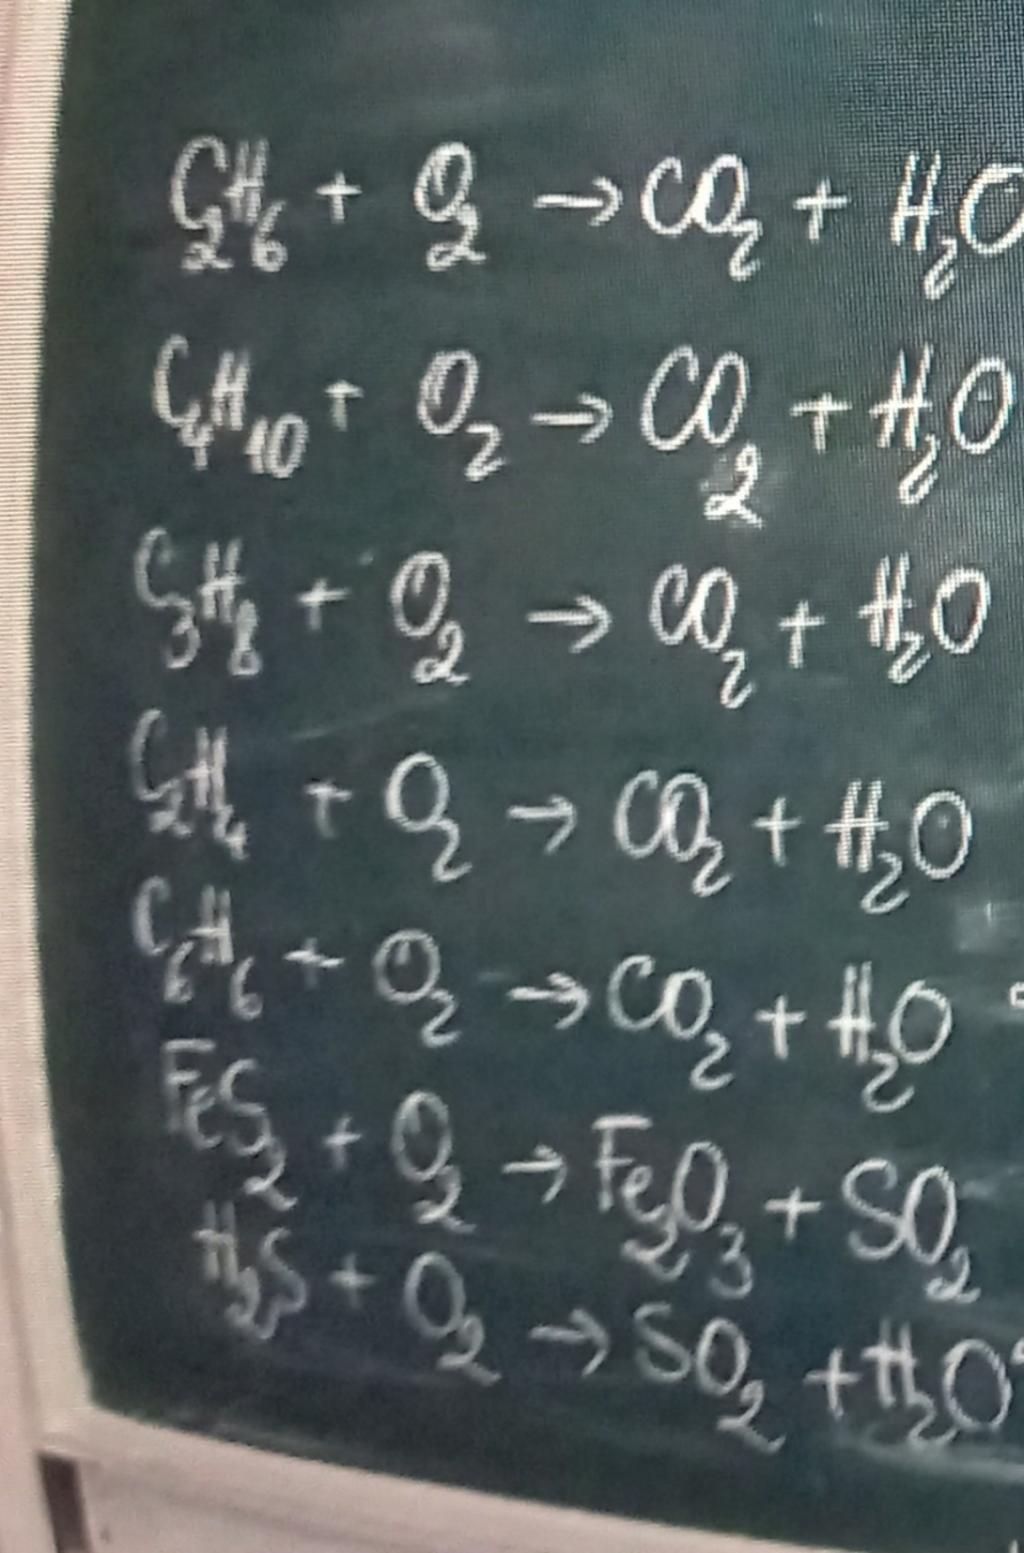 C₂H₆ + O₂ → CO₂ + H₂O
C₄H₁₀ + O₂ → CO₂ + H₂O
C₃H₈ + O₂ → CO₂ + H₂O
C₂H₄ + O₂ → CO₂ + H₂O
C₆H₆ + O₂ → CO₂ + H₂O
FeS₂ + O₂ → Fe₂O₃ + SO₂
H₂S + O₂ → SO₂ + H₂O